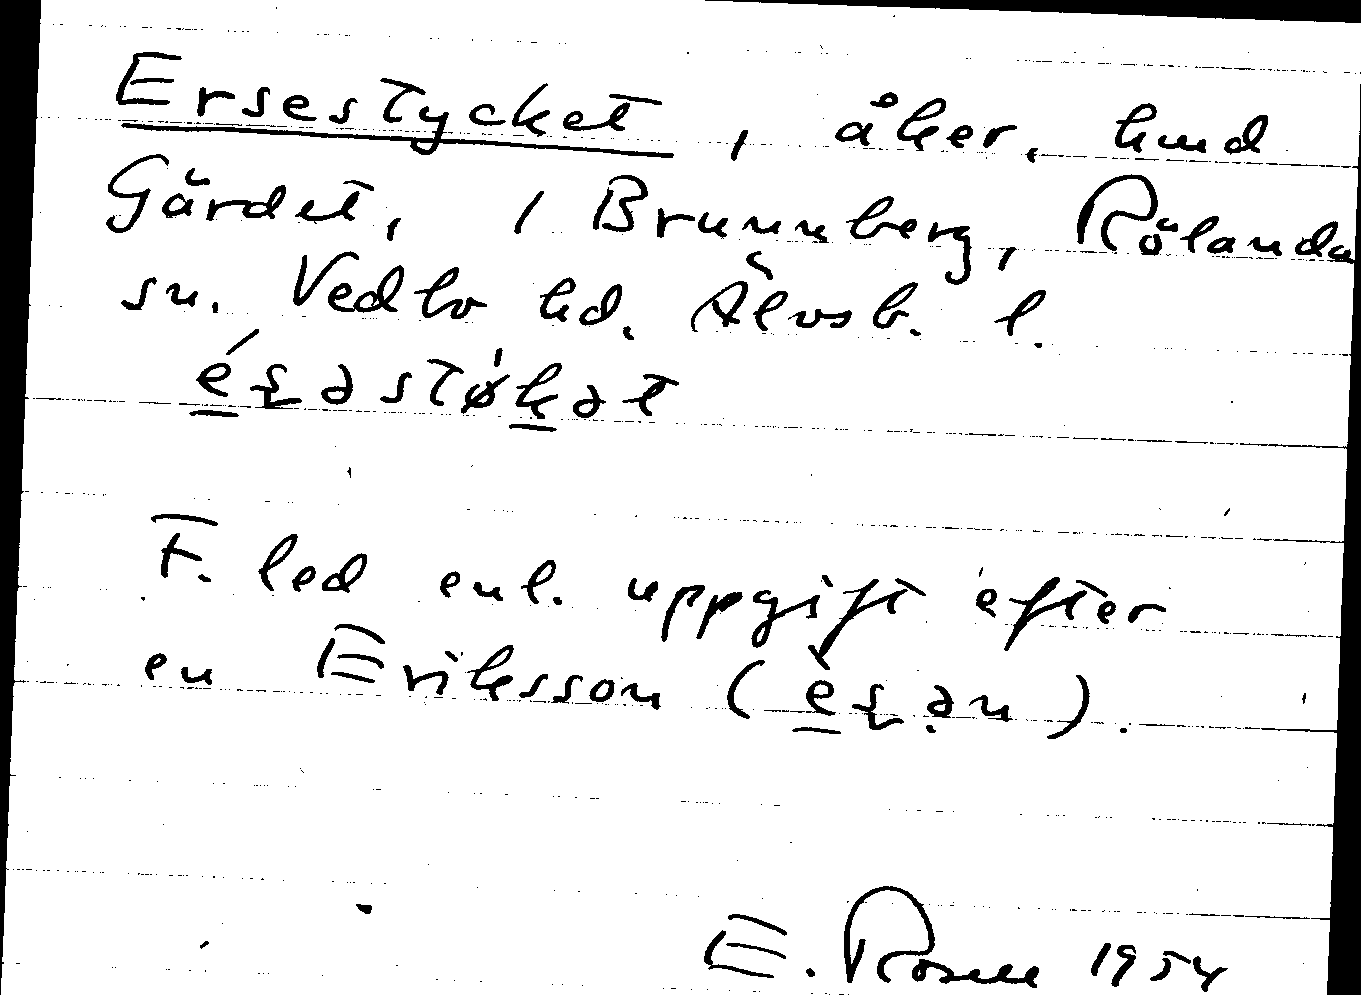 Ersestycket, åker, hmd
Gärdet, i Brunnberg, Rölanda
sn. Vedbo hd. Älvsb. l.
F. led enl. uppgift efter
en Eriksson
E. Rosell 1954